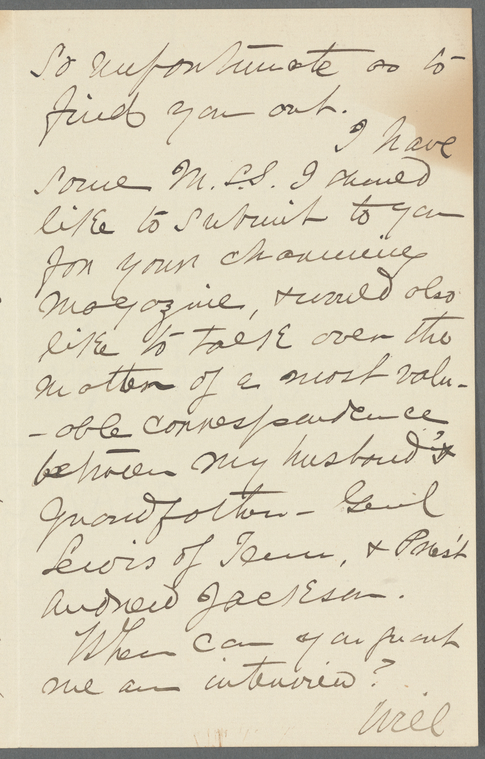 So unfortunate as to
find you out.
I have
some M.S.S. I should
like to submit to you
for your charming
magazine, & would also
like to talk over the
matter of a most valu-
-able correspondence
between my husband's
grandfather - Genl
Lewis of Tenn, & Pres't
Andrew Jackson.
When can you grant
me an interview?
Will